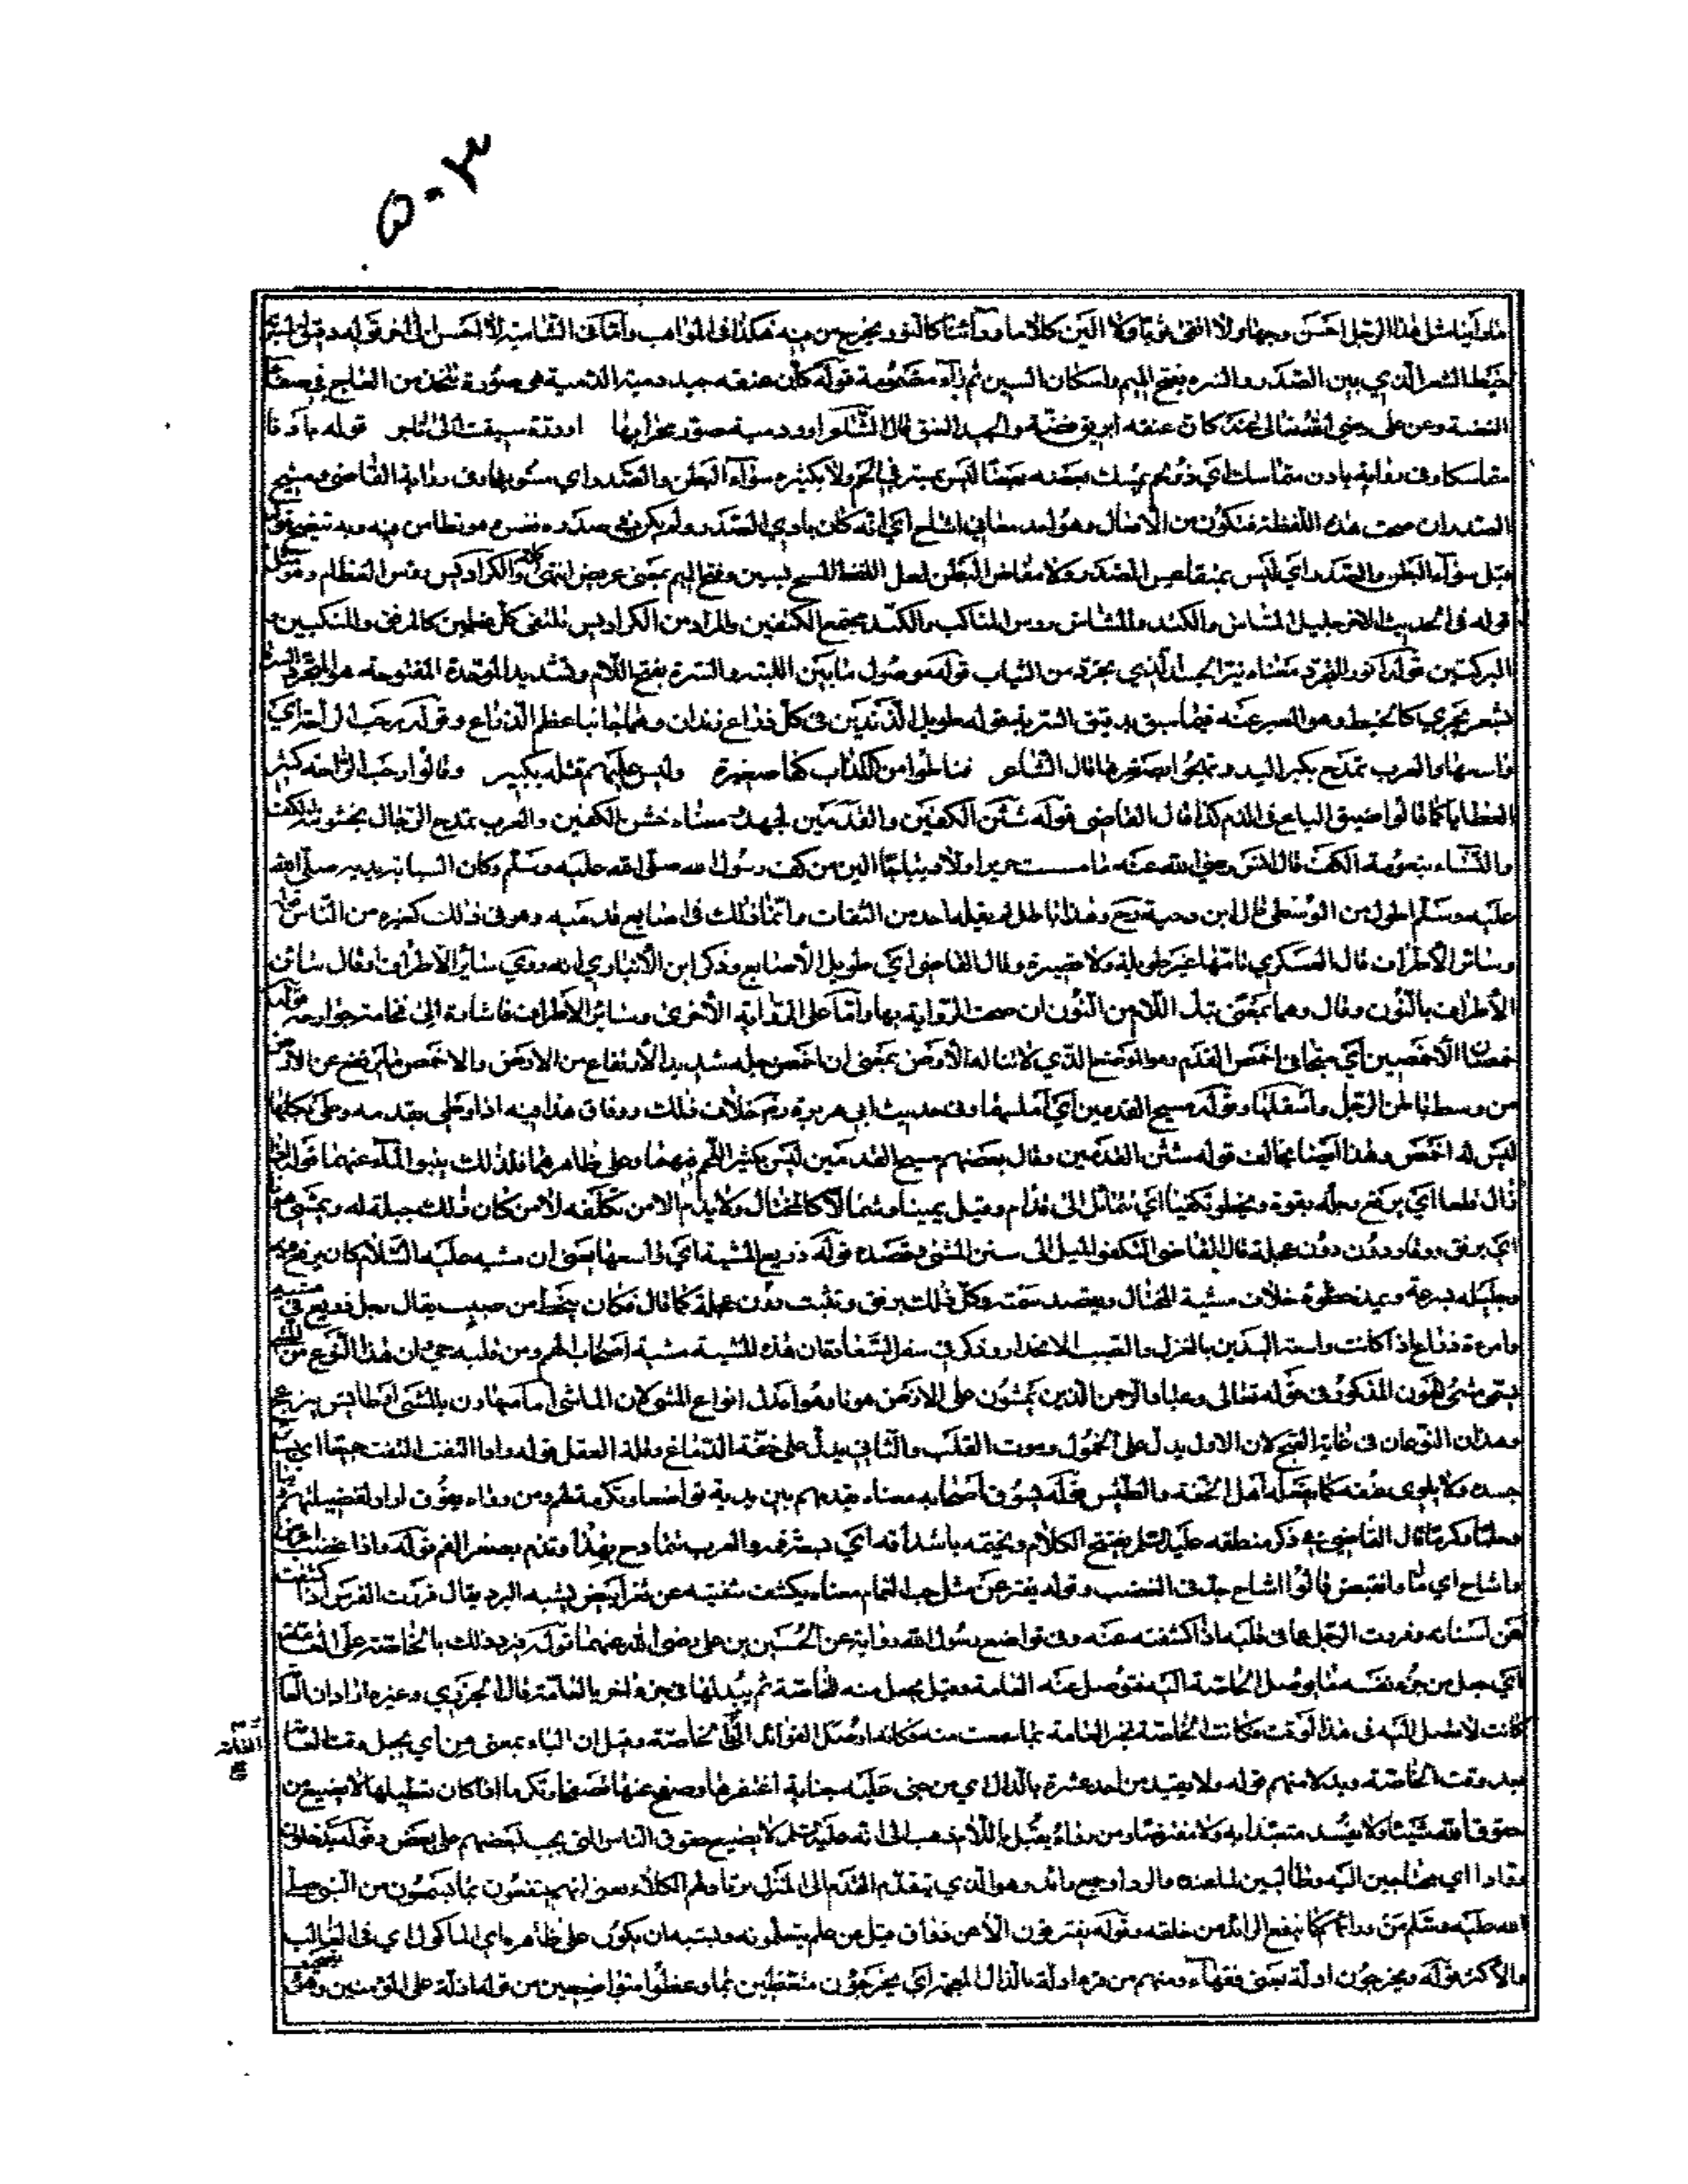 ٥٠٣
ما رأينا مثل هذا الرجل احسن وجها ولا انقى ثوبا ولا الين كلاما ورأينا كالنور يخرج من فيه هكذا في المواهب وأما في الشامية الا احسن الى اخر قوله دقيق المسربة
خيط الشعر الذي بين الصدر والسرة بفتح الميم واسكان السين ثم راء مضمومة قوله كأن عنقه جيد دمية الدمية هى صورة تتخذ من العاج في صفاء
الفضة وعن على رضي الله تعالى عنه كان عنقه ابريق فضة والجيد العنق قال الشاعر او دمية صور محرابها او درة سيقت الى تاجر قوله بادنا
متماسكا وفى رواية بادن متماسك اي ذو لحم يمسك بعضه بعضا ليس بمسترخي اللحم ولا بكثيره سواء البطن والصدر اي مستويهما وفى رواية القاضى مشيح
الصدر ان صحت هذه اللفظة فتكون من الاقبال وهو احد معاني اشاح اي انه كان بادي الصدر ولم يكن في صدره قعس وهو تطامن فيه وبه تتضح قوله
قبل سواء البطن والصدر اي ليس بمتقاعس الصدر ولا مفاض البطن لعل اللفظ المسيح بسين وفتح الميم بمعنى عريض انتهى والكراديس رؤس العظام وهو مثل
قوله فى الحديث الاخر جليل المشاش والكتد والمشاش رؤس المناكب والكتد مجتمع الكتفين والمراد من الكراديس ملتقى كل عظمين كالمرفق والمنكبين و
الركبتين قوله انور المتجرد معناه نير الجسد الذي يجرد من الثياب قوله موصول ما بين اللبة والسرة بفتح اللام وتشديد الموحدة المفتوحة هو المنحر
بشعر يجري كالخيط وهو المعبر عنه فيما سبق بدقيق المسربة قوله طويل الزندين فى كل ذراع زندان وهما جانبا عظم الذراع وقوله رحب الراحة اي
واسعها والعرب تمدح بكبر اليد وتهجوا بصغرها قال الشاعر فناطوا من الكذاب كفا صغيرة وليس عليهم قتله بكبير وقالوا رحب الراحة كثير
العطايا كما قالوا ضيق الباع فى الذم كذا قال القاضى قوله شثن الكفين والقدمين معناه خشن الكفين والعرب تمدح الرجال بخشونة الكف
والنساء بنعومة الكف قال انس رضي الله عنه ما مسست حريرا ولا ديباجا الين من كف رسول الله صلى الله عليه وسلم وكان السبابة يديه صلى الله
عليه وسلم اطول من الوسطى قال ابن دحية وهذا باطل لم يقله احد من الثقات وانما ذلك فى اصابع قدميه وهو فى ذلك كغيره من الناس قوله
وسائر الاطراف قال العسكري تامتها غير طويلة ولا قصيرة وقال القاضى اي طويل الاصابع وذكر ابن الانباري انه روي سائر الاطراف وقال سائن
الاطراف بالنون وقال وهما بمعنى تبدل اللام من النون ان صحت الرواية بها واما على الرواية الاخرى وسائر الاطراف فاشارة الى فخامة جوارحه قوله
خمصان الاخمصين اي متجافى اخمص القدم وهو الموضع الذي لا تناله الارض بمعنى ان اخمص رجله شديد الارتفاع من الارض والاخمص ما ارتفع عن الارض
من وسط باطن الرجل وأسفلها وقوله مسيح القدمين اي املسهما وفى حديث ابى هريرة رضى خلاف ذلك ووفاق هذا فيه اذا وطى بقدمه وطى بكلها
ليس له اخمص وهذا ايضا يخالف قوله شثن القدمين وقال بعضهم مسيح القدمين ليس بكثير اللحم فيهما وعلى ظاهرهما فلذلك ينبو الماء عنهما قوله اذا
زال قلعا اي يرفع رجله بقوة ويخطو تكفيا اي يتمائل الى قدام وقيل يمينا وشمالا كالمختال ولا يذم الا من تكلفه لا من كان ذلك جبلة له ويمشى هونا
اي برفق ووقار دون عجلة قال القاضى التكفو الميل الى سنن المشي وقصده قوله ذريع المشية اي واسعها بمعنى ان مشيه عليه السلام كان يرفع فيه
رجليه بسرعة ويمد خطوه خلاف مشية المختال ويقصد سمته وكل ذلك برفق وتثبت دون عجلة كما قال فكان ينحط من صبب يقال رجل ذريع فى مشيه
وامرءة ذراع اذا كانت واسعة اليدين بالغزل والصبب الانحدار وذكر فى سفر السعادة ان هذه المشية مشية اصحاب الهمم ومن قلبه حي وان هذا النوع من المشى
يسمى مشي الهون المذكور فى قوله تعالى وعباد الرحمن الذين يمشون على الارض هونا وهو اعدل انواع المشى لان الماشى اما متهاون بالمشى او طايش ينزعج
وهذان النوعان فى غاية القبح لان الاول يدل على الخمول وموت القلب والثاني يدل على خفة الدماغ وقلة العقل قوله واذا التفت التفت جميعا اي
جسده ولا يلوى عنقه كما يفعله اهل الخفة والطيش قوله يسوق اصحابه معناه يقدمهم بين يديه تواضعا وتكرمة لهم ومن رواه يفوق اراد لفضيلتهم
وحلما وكرما قال القاضى فى ذكر منطقه عليه السلام يفتتح الكلام ويختمه باشداقه اي بسعة فمه والعرب تتمادح بهذا وتذم بصغر الفم قوله واذا غضب اعرض
واشاح اي مال وانقبض قالوا اشاح جد فى الغضب وقوله يفتر عن مثل حب الغمام معناه يكشف شفتيه عن ثغر ابيض يشبه البرد يقال فررت الفرس اذا كشفت
عن اسنانه وفررت الرجل عما فى قلبه اذا كشفته عنه وفى تواضع رسول الله رواية عن الحسين بن على رضى الله عنهما قوله فيرد ذلك بالخاصة على العامة
اي جعل من جزء نفسه ما يوصل الخاصة اليه فتوصل عنه العامة وقيل يجعل منه للخاصة ثم يبدلها فى جزء اخر بالعامة قال الجزري وغيره اراد ان العامة
كانت لا تصل اليه فى هذا الوقت فكانت الخاصة تخبر العامة بما سمعت منه فكانه اوصل الفوائد الى الخاصة وقيل ان الباء بمعنى من اي يجعل وقت العامة
بعد وقت الخاصة وبدلا منهم قوله ولا يقيد من احد عشرة بالدال اي من جنى عليه جناية اغتفرها وصفح عنها تصفحا وتكرما اذا كان تعطيلها لا يضيع من
حقوق الله شيئا ولا يفسد متعبدا به ولا مفترضا ومن رواه يقبل باللام ذهب الى انه عليه السلام لا يضيع حقوق الناس التى يجب لبعضهم على بعض وقوله يدخلون
روادا اي محتاجين اليه وطالبين لما عنده والرواد جمع رائد وهو الذي يتقدم القوم الى المنزل يرتاد لهم الكلاء بمعنى انهم ينفعون بما يسمعون من النبى صلى
الله عليه وسلم من ورائهم كما ينفع الرائد من خلفه وقوله يفترقون الا عن ذواق قيل من علم يتعلمونه ويشبه ان يكون على ظاهره اي الماكول اي فى الغالب
والاكثر قوله ويخرجون ادلة يعنى فقهاء ومنهم من قرء اذلة بالذال المعجمة اي يخرجون متعظين بما وعظوا متواضعين من قوله اذلة على المؤمنين وهو
العامة